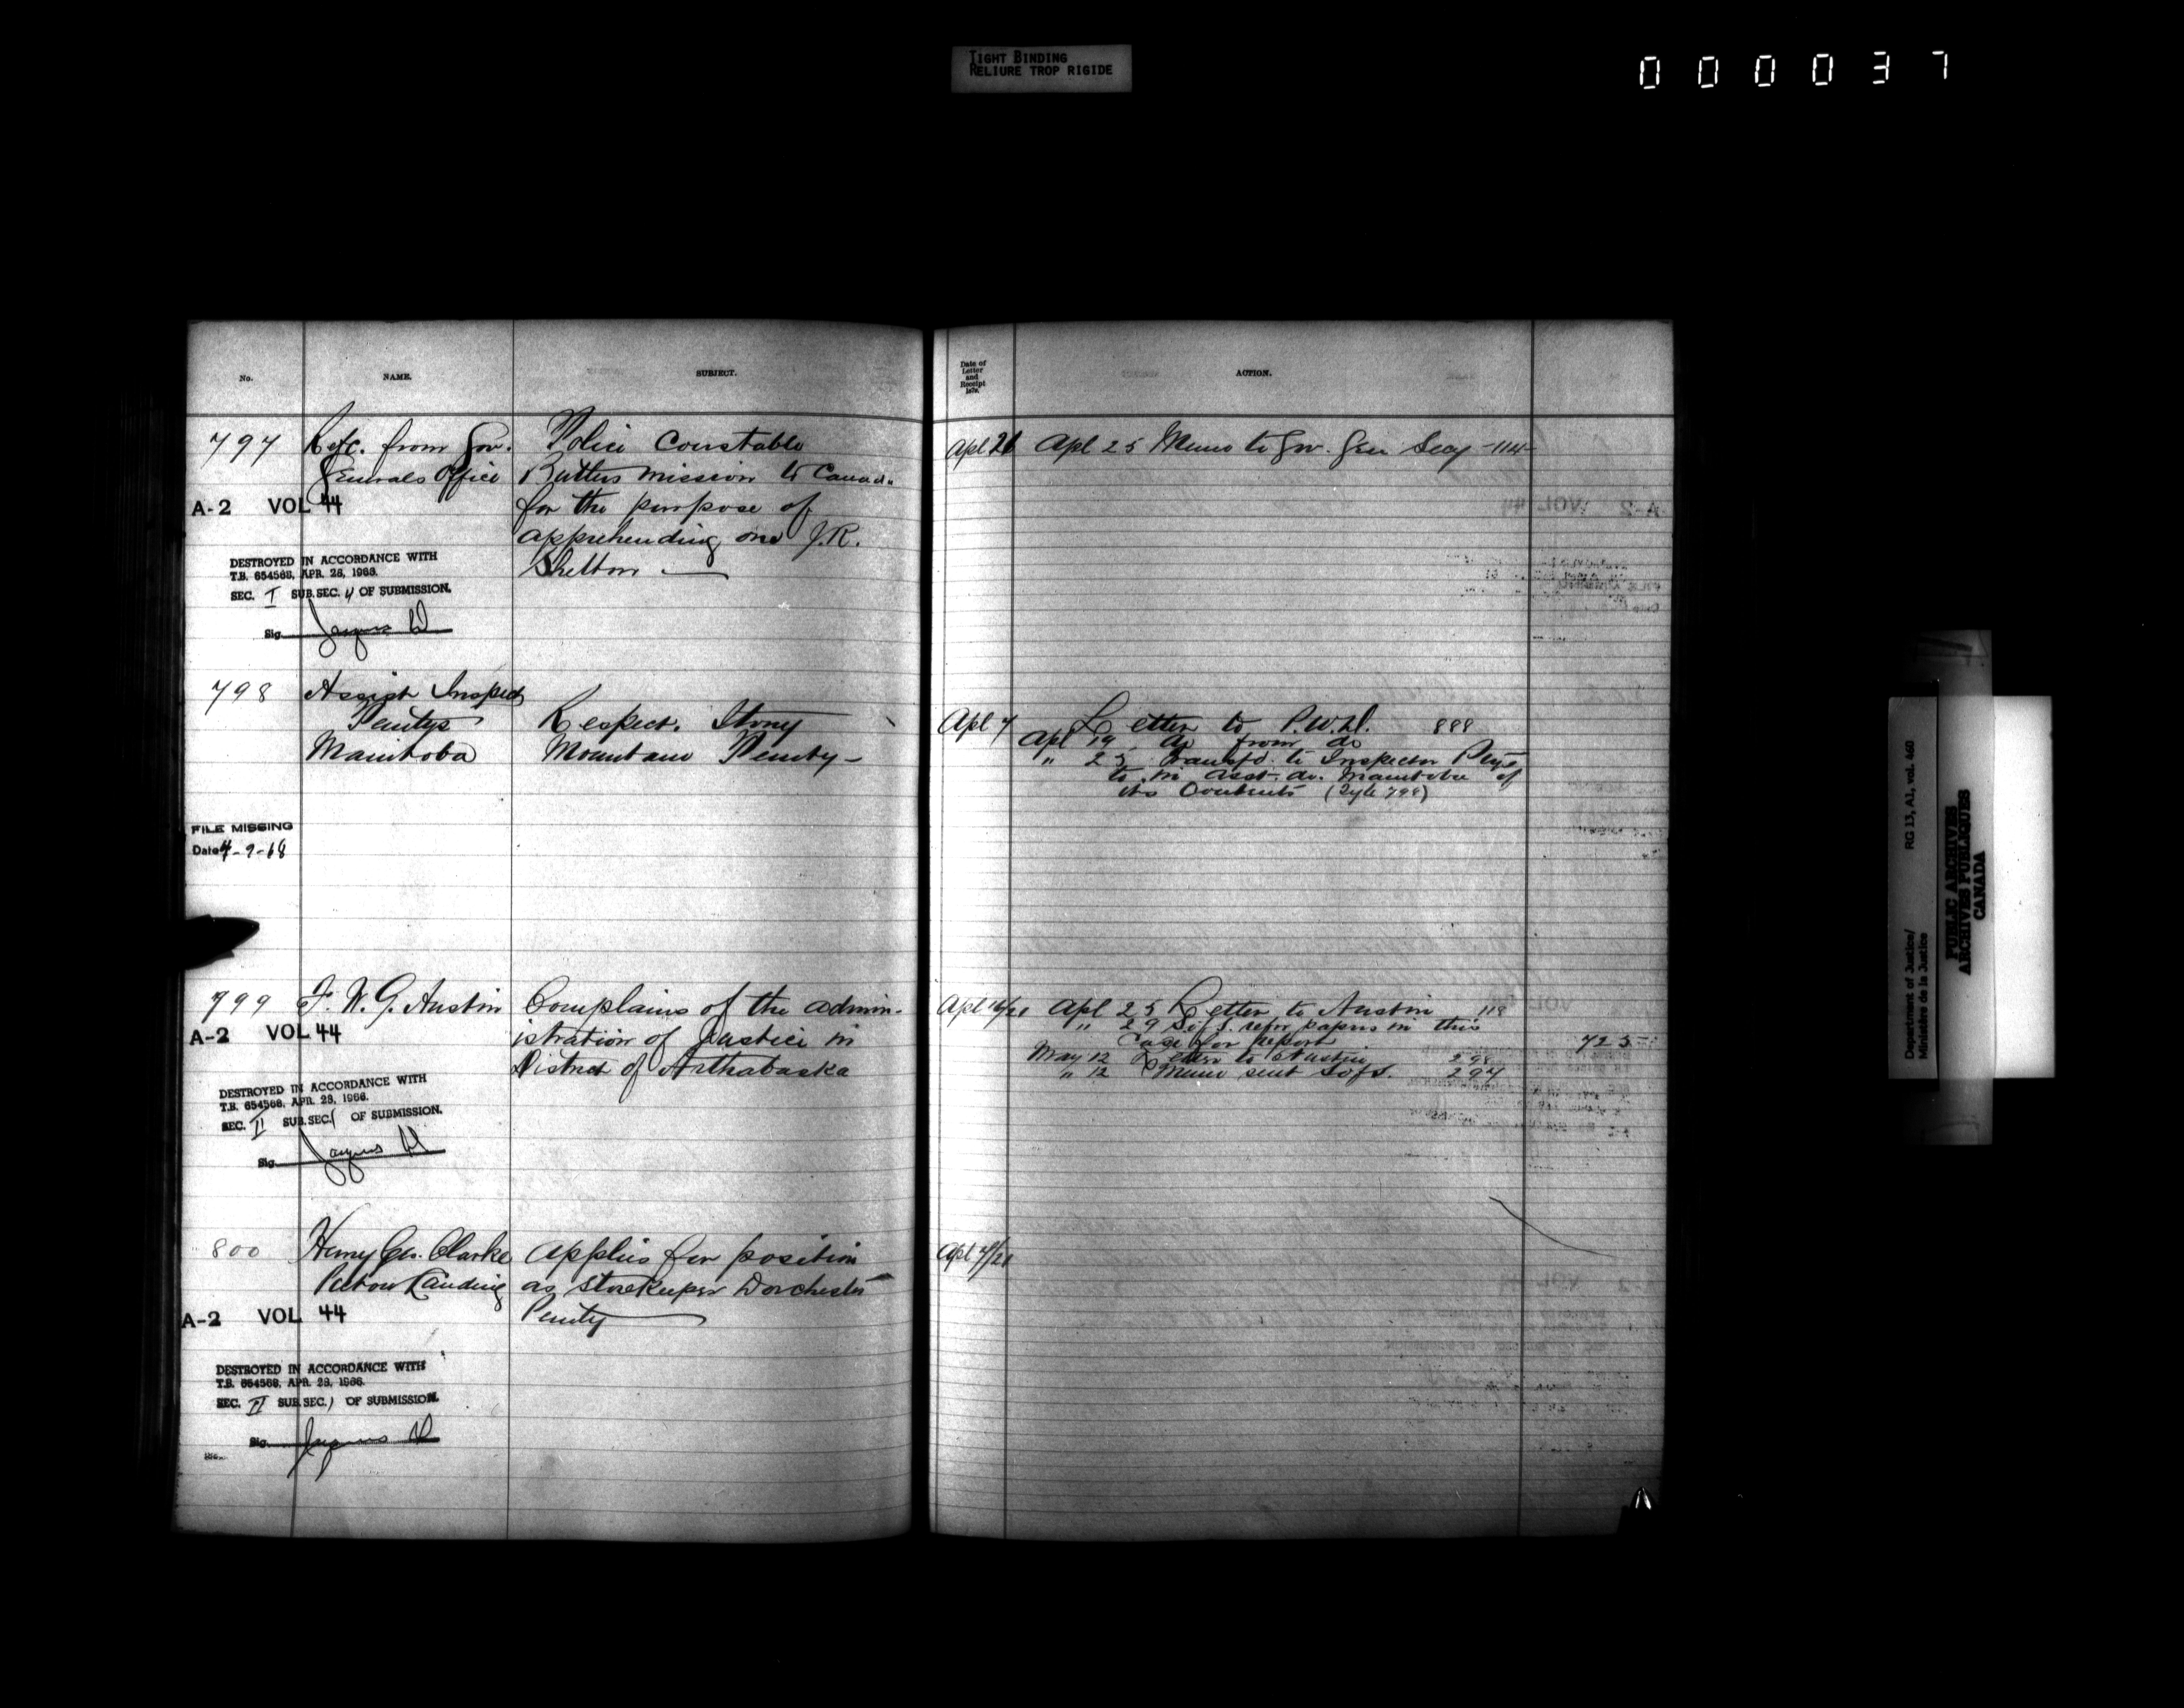 TIGHT BINDING
RELIURE TROP RIGIDE
000037
No. NAME. SUBJECT.
797 Refc. from Gov. Police Constable
Generals Office Butters mission to Canada
A-2 VOL 44 for the purpose of
apprehending one J.R.
Shelton
DESTROYED IN ACCORDANCE WITH
T.B. 654568, APR. 28, 1966.
SEC. I SUB.SEC. 4 OF SUBMISSION.
Sig.
798 Assist Inspect
Penitys Respect. Stony
Manitoba Mountain Penity-
FILE MISSING
Date 4-9-68
799 F. W. G. Austin Complains of the admin-
A-2 VOL 44 istration of Justice in
District of Arthabaska
DESTROYED IN ACCORDANCE WITH
T.B. 654568, APR. 28, 1966.
SEC. II SUB.SEC. 1 OF SUBMISSION.
Sig.
800 Henry Geo. Clarke applies for position
Landing as Storekeeper Dorchester
A-2 VOL 44 Penity
DESTROYED IN ACCORDANCE WITH
T.B. 654568, APR. 28, 1966.
SEC. II SUB.SEC. 1 OF SUBMISSION.
Sig.
Date of
Letter
and
Receipt
187
ACTION.
Apl 21 Apl 25 Memo to Gov. Gen Secy -114-
Apl 7 Letter to P.W.D. 888
Apl 19 do from do
" 25 Transfd. to Inspector Ptys
to asst. do. Manitoba of
its Contents (Fyle 798)
Apl 16/21 Apl 25 Letter to Austin 118
" 29 S of S. refer papers in this
Case for report 725
May 12 Letter to Austin
" 12 Memo sent S of S. 297
Apl /21
Department of Justice/ RG 13, A1, vol. 460
Ministère de la Justice
PUBLIC ARCHIVES
ARCHIVES PUBLIQUES
CANADA